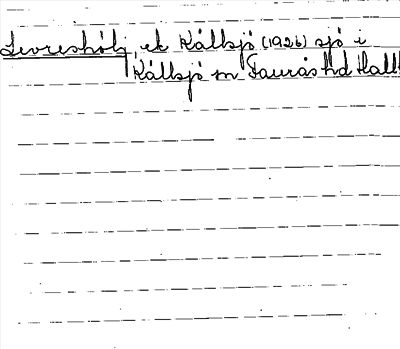 ek Källsjö (1926) sjö i
Källsjö sn Faurås hd Hall